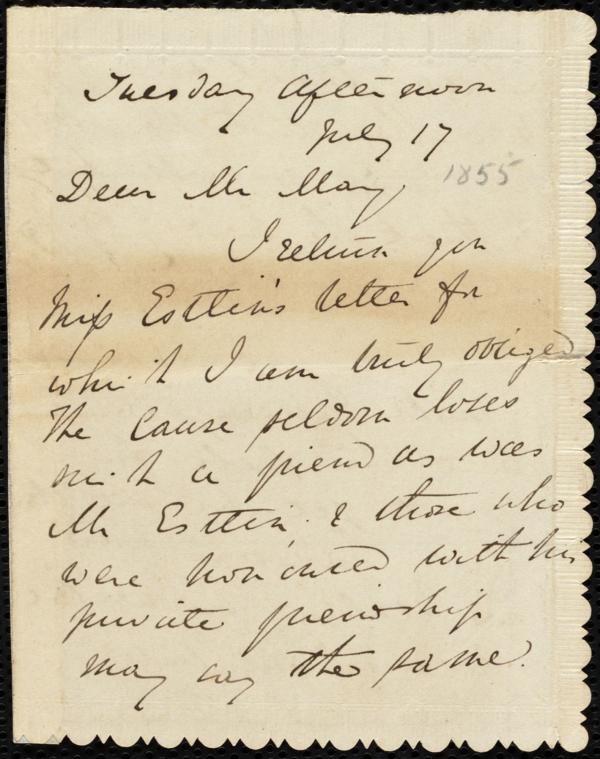 Tuesday afternoon
July 17
1855
Dear Mr May,
I return you
Miss Estlin's letter for
which I am truly obliged
The Cause seldom loses
such a friend as was
Mr Estlin; & those who
were honoured with his
private friendship
may say the same.